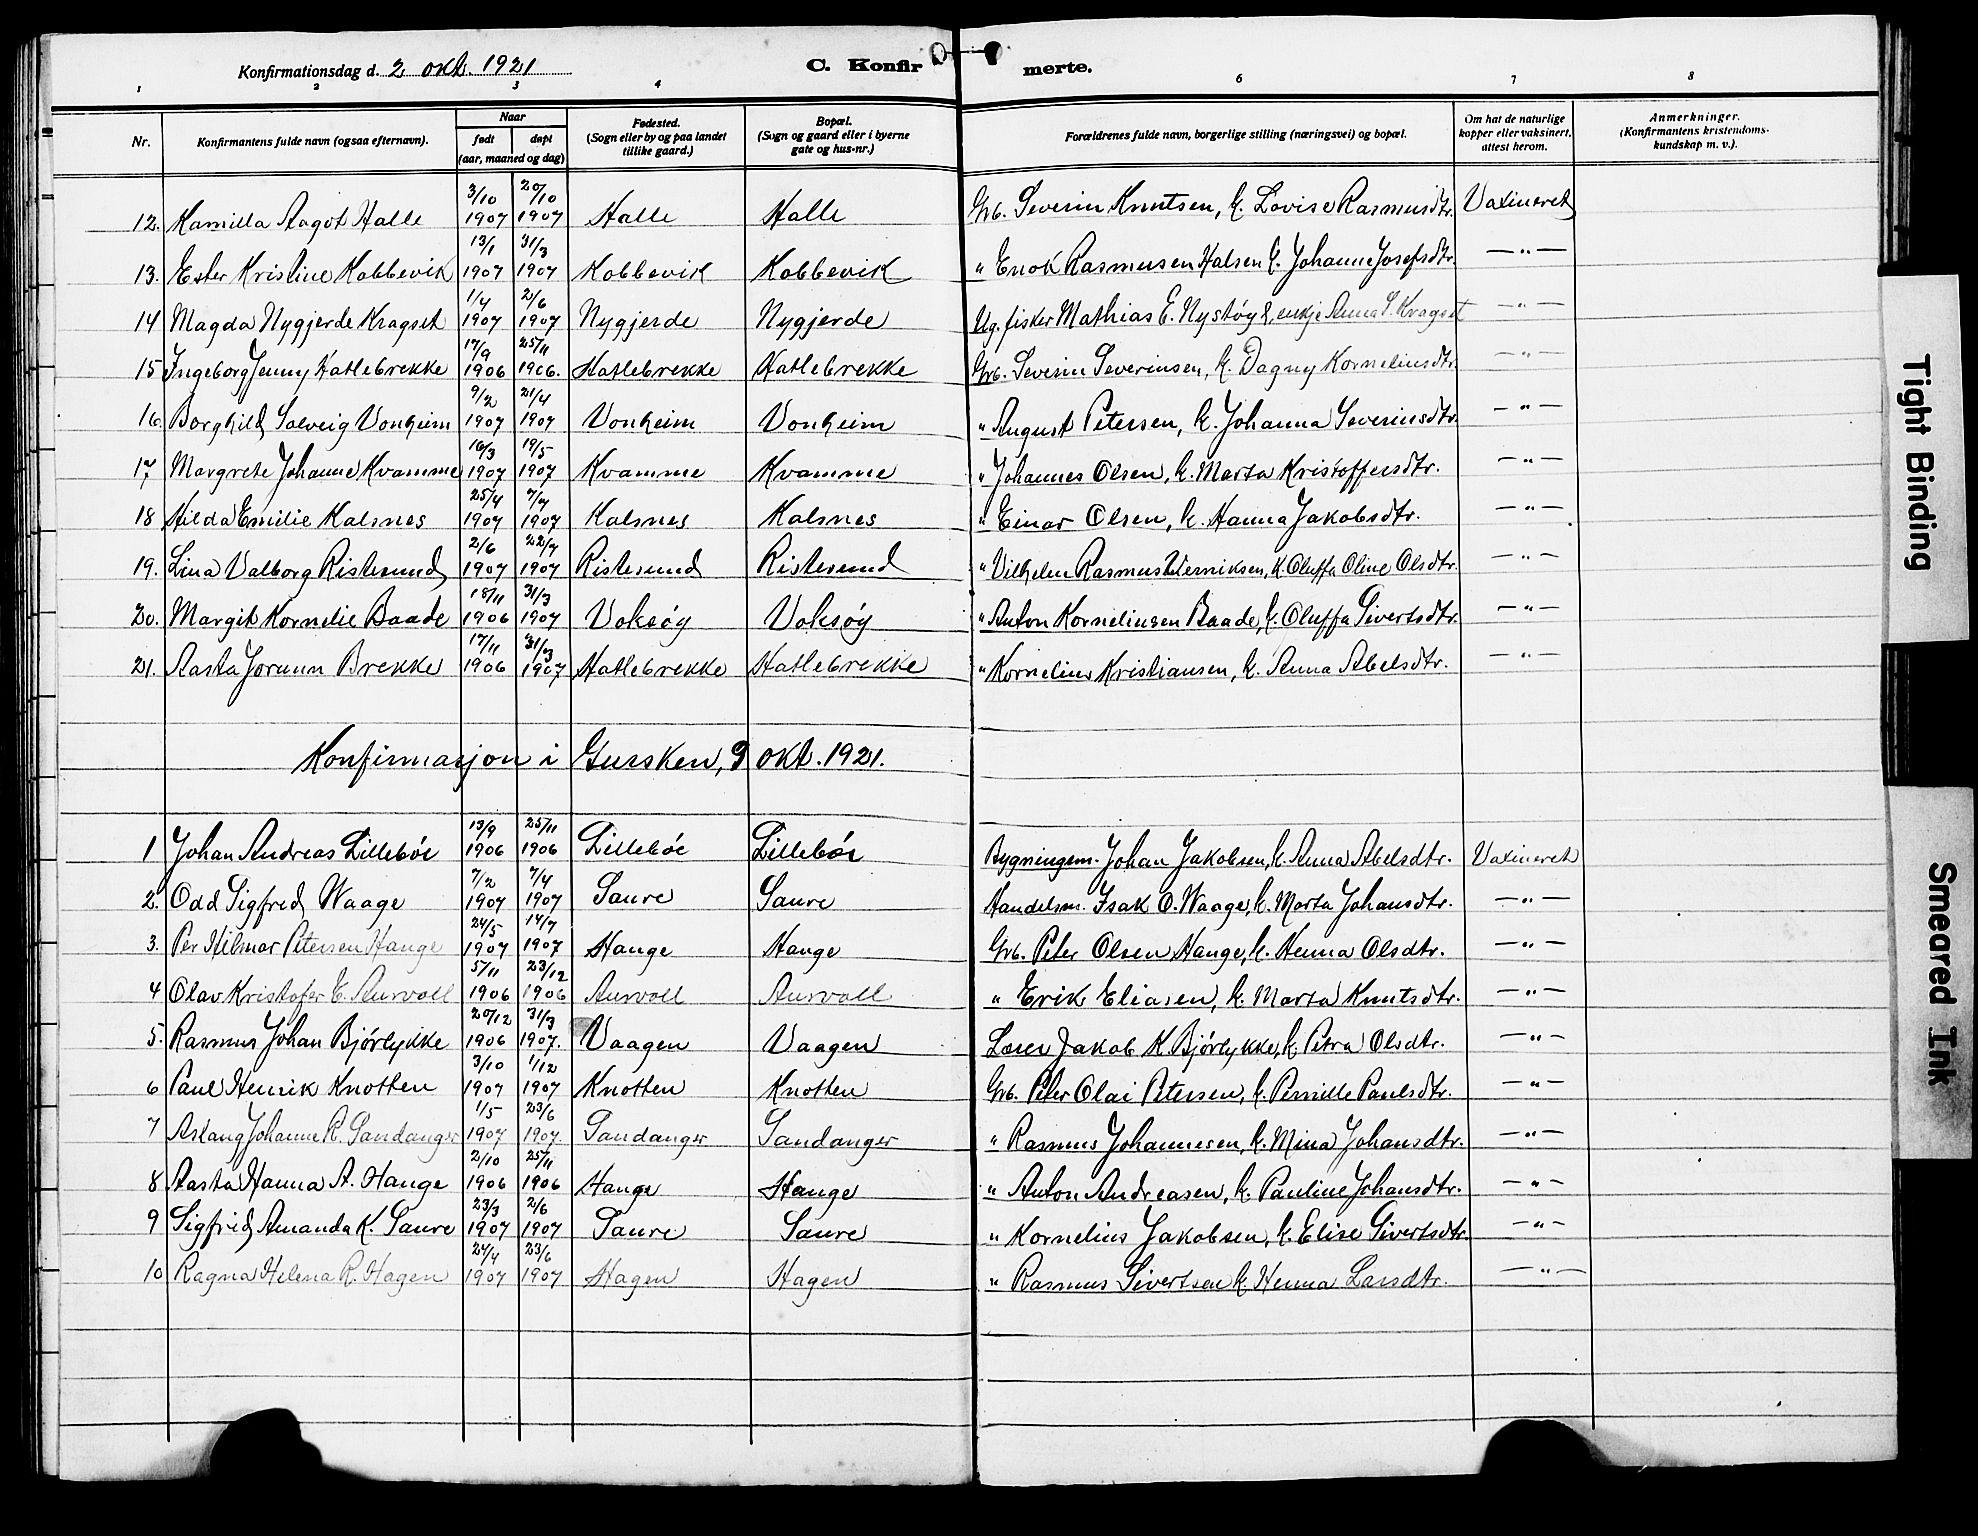 Konfirmationsdag d. 2 okt. 1921 C. Konfirmerte.
1 2 3 4 6 7 8
Nr. Konfirmantens fulde navn (ogsaa efternavn). Naar født døpt (aar, maaned og dag) Fødested. (Sogn eller by og paa landet tillike gaard.) Bopæl. (Sogn og gaard eller i byerne gate og hus-nr.) Forældrenes fulde navn, borgerlige stilling (næringsvei) og bopæl. Om hat de naturlige kopper eller vaksinert, attest herom. Anmerkninger. (Konfirmantens kristendomskundskap m. v.).
12. Kamilla Aagot Halle 3/10 1907 20/10 1907 Halle Halle Grb. Severin Knutsen, k. Lovise Rasmusdtr. Vaxineret
13. Ester Kristine Kobbevik 13/1 1907 31/3 1907 Kobbevik Kobbevik " Enok Rasmusen Halsen k. Johanne Josefsdtr. —"—
14 Magda Nygjerde Kragset 1/4 1907 2/6 1907 Nygjerde Nygjerde Ug. fisker Mathias E. Nystøy & enkje Anna S. Kragset —"—
15 Ingeborg Jenny Hatlebrekke 17/9 1906 25/11 1906. Hatlebrekke Hatlebrekke Grb. Severin Severinsen, k. Dagny Korneliusdtr. —"—
16. Borghild Solveig Vonheim 9/2 1907 21/4 1907 Vonheim Vonheim " August Petersen, k. Johanna Severinsdtr. —"—
17 Margrete Johanne Kvamme 16/3 1907 19/5 1907 Kvamme Kvamme " Johannes Olsen, k. Marta Kristoffersdtr. —"—
18 Hilda Emilie Kalsnes 25/4 1907 7/7 1907 Kalsnes Kalsnes " Einar Olsen, k. Hanna Jakobsdtr. —"—
19. Lina Valborg Ristesund 2/6 1907 22/7 1907 Ristesund Ristesund " Vilhelm Rasmus Henriksen, k Oluffa Oline Olsdtr. —"—
20. Margit Kornelie Baade 18/11 1906 31/3 1907 Voksøy Voksøy " Anton Korneliusen Baade, k. Oluffa Sivertsdtr. —"—
21. Aasta Jorunn Brekke 17/11 1906 31/3 1907 Hatlebrekke Hatlebrekke " Kornelius Kristiansen, k. Anna Abelsdtr. —"—
Konfirmasjon i Gursken, 9 okt. 1921.
1 Johan Andreas Lillebøe 13/9 1906 25/11 1906 Lillebøe Lillebøe Bygningsm. Johan Jakobsen, k. Anna Abelsdtr. Vaxineret
2. Odd Sigfred Waage 7/2 1907 7/4 1907 Saure Saure Handelsm. Isak O. Waage, k. Marta Johansdtr. —"—
3. Per Hilmar Petersen Hauge 24/5 1907 14/7 1907 Hauge Hauge Grb. Peter Olsen Hauge, k. Henna Olsdtr. —"—
4 Olav Kristofer E. Aurvoll 5/11 1906 23/12 1906 Aurvoll Aurvoll " Erik Eliasen, k. Marta Knutsdtr. —"—
5. Rasmus Johan Bjørlykke 20/12 1906 31/3 1907. Vaagen Vaagen Lærer Jakob K. Bjørlykke, k. Petra Olsdtr. —"—
6 Paul Henrik Knotten 3/10 1907 1/12 1907 Knotten Knotten Grb. Peter Olai Petersen, k. Pernille Paulsdtr. —"—
7 Aslaug Johanne R. Sandanger 1/5 1907 23/6 1907. Sandanger Sandanger " Rasmus Johannesen, k. Mina Johansdtr. —"—
8 Aasta Hanna A. Hauge 2/10 1906 25/11 1906 Hauge Hauge " Anton Andreasen, k. Pauline Johansdtr. —"—
9 Sigfrid Amanda K. Saure 23/3 1907 2/6 1907 Saure Saure " Kornelius Jakobsen, k. Elise Sivertsdtr. —"—
10 Ragna Helena R. Hagen 24/4 1907 23/6 1907 Hagen Hagen " Rasmus Sivertsen k. Henna Larsdtr. —"—
Tight Binding
Smeared Ink